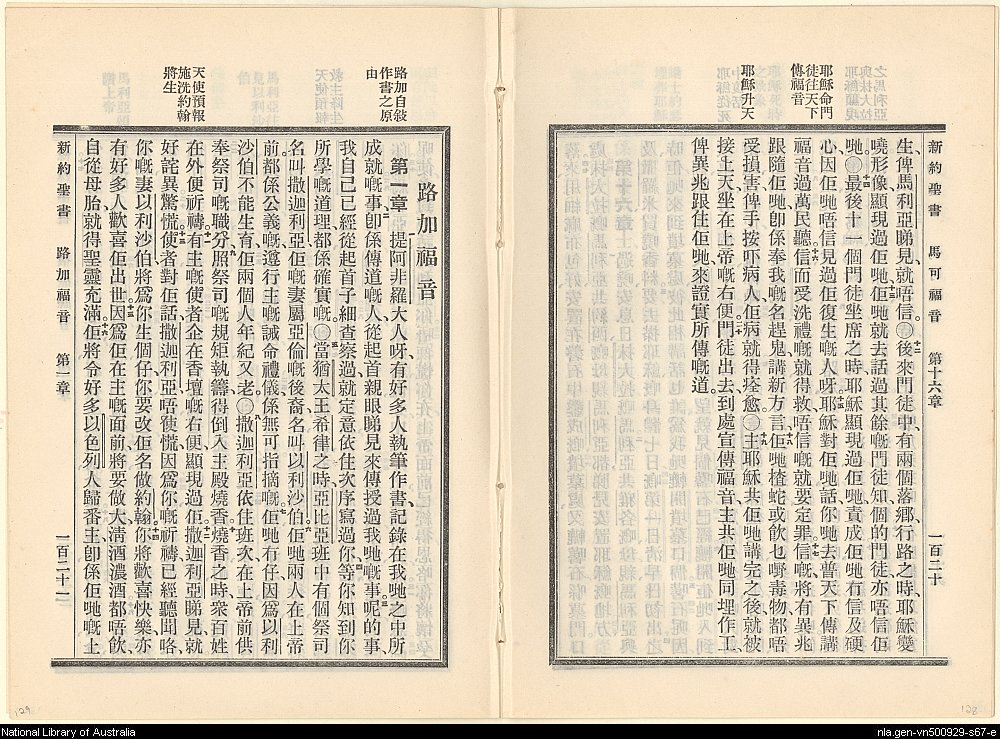 新約聖書　馬可福音　第十六章　一百二十
耶穌命門
徒往天下
傳福音
耶穌升天
生俾馬利亞睇見就唔信後來門徒中有兩個落鄉行路之時耶穌變
嘵形像顯現過佢哋佢哋就去話過其餘嘅門徒知個的門徒亦唔信佢
哋最後十一個門徒坐席之時耶穌顯現過佢哋責成佢哋冇信及硬
心因佢哋唔信見過佢復生嘅人呀耶穌對佢哋話你哋去普天下傳講
福音過萬民聽信而受洗禮嘅就得救唔信嘅就要定罪信嘅將有異兆
跟隨佢哋卽係奉我嘅名趕鬼講新方言佢哋揸蛇或飲乜嘢毒物都唔
受損害俾手按吓病人佢病就得痊愈主耶穌共佢哋講完之後就被
接上天坐在上帝嘅右便門徒出去到處宣傳福音主共佢哋同埋作工
俾異兆跟住佢哋來證實所傳嘅道
路加自敍
作書之原
由
天使預報
施洗約翰
將生
路加福音
第一章　提阿非羅大人呀有好多人執筆作書記錄在我哋之中所
成就嘅事卽係傳道嘅人從起首親眼睇見來傳授過我哋嘅事呢的事
我自己已經從起首子細查察過就定意依住次序寫過你等你知到你
所學嘅道理都係確實嘅當猶太王希律之時亞比亞班中有個祭司
名叫撒迦利亞佢嘅妻屬亞倫嘅後裔名叫以利沙伯佢哋兩人在上帝
前都係公義嘅遵行主嘅誡命禮儀係無可指摘嘅佢哋冇仔因爲以利
沙伯不能生育佢兩個人年紀又老撒迦利亞依住班次在上帝前供
奉祭司嘅職分照祭司嘅規矩執籌得倒入主殿燒香燒香之時衆百姓
在外便祈禱有主嘅使者企在香壇嘅右便顯現過佢撒迦利亞睇見就
好詫異驚慌使者對佢話撒迦利亞唔使慌因爲你嘅祈禱已經聽聞咯
你嘅妻以利沙伯將爲你生個仔你要改佢名做約翰你將歡喜快樂亦
有好多人歡喜佢出世因爲佢在主嘅面前將要做大淸酒濃酒都唔飮
自從母胎就得聖靈充滿佢將令好多以色列人歸番主卽係佢哋嘅上
新約聖書　路加福音　第一章　一百二十一
129
128
National Library of Australia
nla.gen-vn500929-s67-e